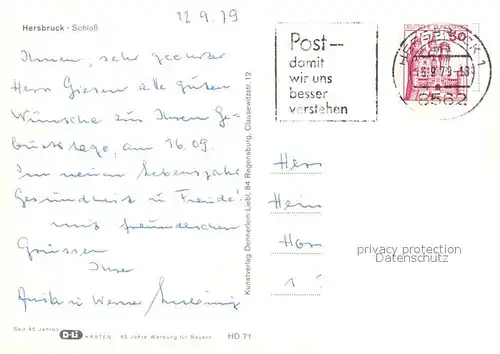 12.9.79
Hersbruck - Schloß
Ihnen, sehr geehrter
Herr Giesen alle guten
Wünsche zu Ihrem Ge-
burtstage, am 16.09.
Im neuen Lebensjahr
Gesundheit u. Freude!
mit freundlichen
Grüssen
Ihre
u Werner
Post -
damit
wir uns
besser
verstehen
DEUTSCHE BUNDESPOST
50
HERSBRUCK 1
8562
Kunstverlag Dennerlein-Liebl, 84 Regensburg, Clausewitzstr. 12
Herr
Hein
Hor
privacy protection
Datenschutz
Seit 45 Jahren D-Li KARTEN 45 Jahre Werbung für Bayern HD 71